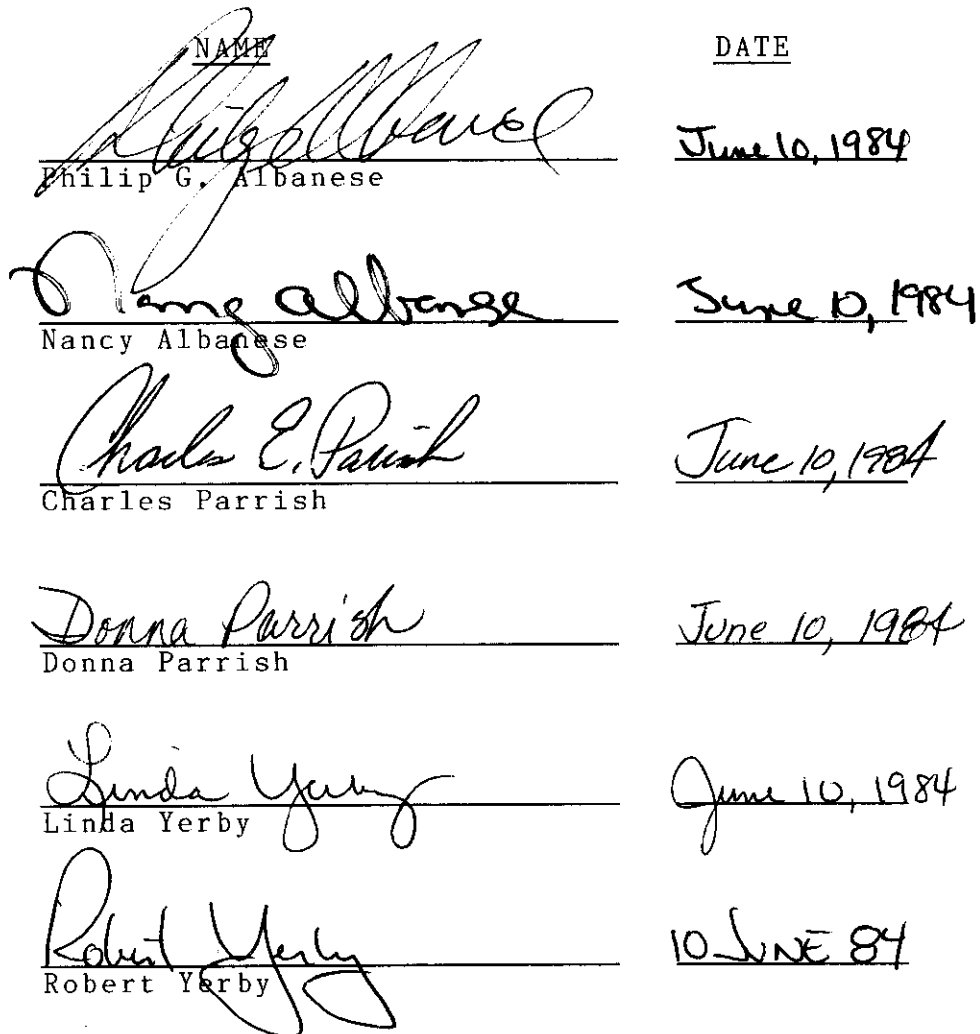 NAME DATE
Philip G. Albanese June 10, 1984
Philip G. Albanese
Nancy Albanese June 10, 1984
Nancy Albanese
Charles E. Parrish June 10, 1984
Charles Parrish
Donna Parrish June 10, 1984
Donna Parrish
Linda Yerby June 10, 1984
Linda Yerby
Robert Yerby 10 JUNE 84
Robert Yerby